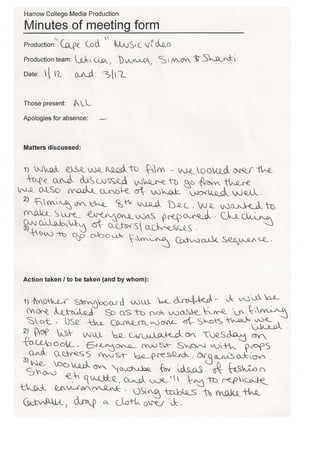 Harrow College Media Production
Minutes of meeting form
Production: "Cape Cod" Music video
Production team: Leticia, Dunia, Simon & Shardi
Date: 1/12 and 3/12
Those present: ALL
Apologies for absence: —
Matters discussed:
1) What else we need to film - we looked over the
tape and discussed where to go from there.
we also made a note of what worked well.
2) Filming on the 8th wed Dec. We wanted to
make sure everyone was prepared. Checking
availability of actors/actresses.
3) How to go about filming catwalk sequence.
Action taken / to be taken (and by whom):
1) Another storyboard will be drafted - it will be
more detailed so as to not waste time in filming
slot. Use the camera work of shots that we liked.
2) Prop list will be circulated on Tuesday on
facebook. Everyone must show with props
and actress must be present. organisation.
3) We looked on Youtube for ideas of fashion
show etiquette, and we'll try to replicate
that environment. Using tables to make the
catwalk, drap a cloth over it.